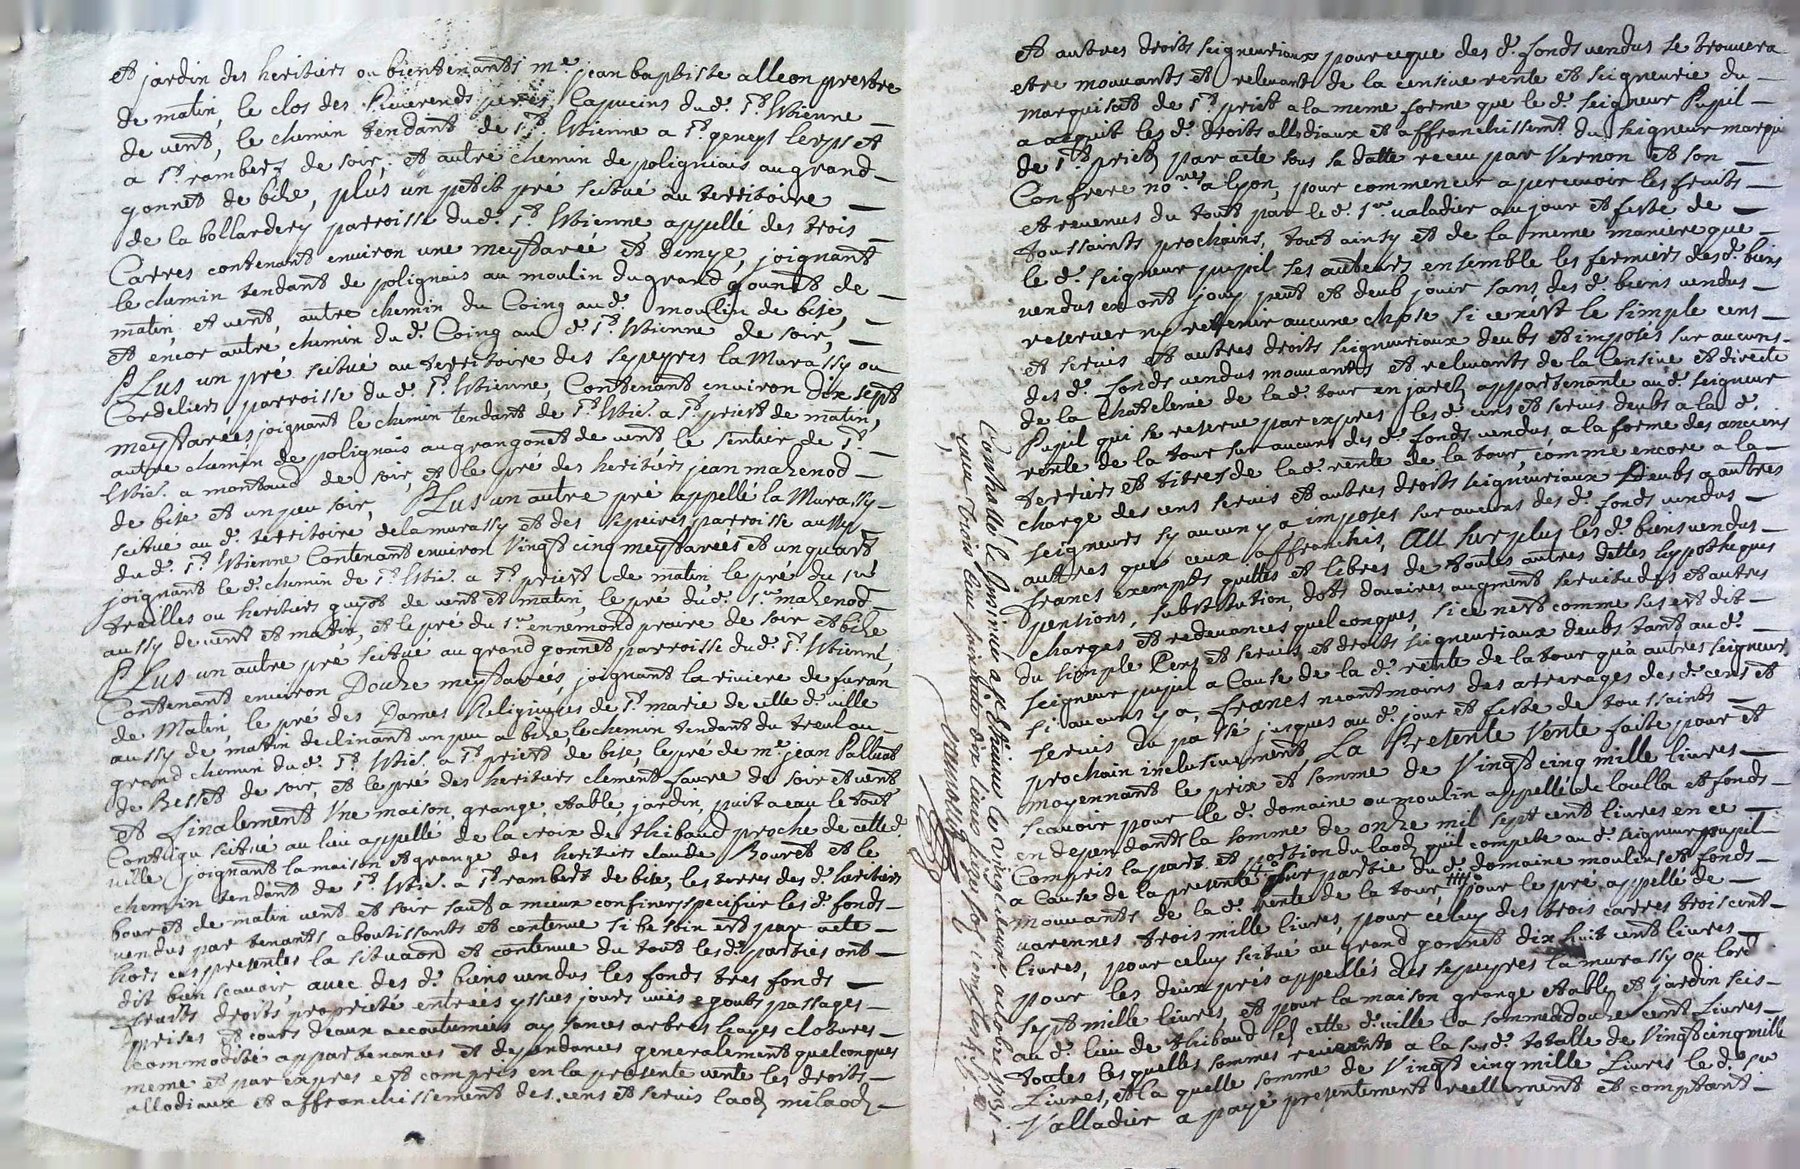 et jardin des heritiers ou bientenants me. jean baptiste alleon prestre
de matin, le clos des Reverends peres Capucins dud. st. Estienne
de vent, le chemin tendant de st. Estienne a st. genest lerps et
a st. rambert de soir, et autre chemin de polignais au grand
gonnet de bize, plus un petit pré scitué au territoire
de la bollardery parroisse dud. st. Estienne, appellé des trois
Carres contenant environ une meyttarée et demye, joignant
le chemin tendant de polignais au moulin du grand gounet de
matin, et vent, autre chemin du Coing aud. moulin de bise,
et encor autre chemin dud. Coing aud. st. Estienne de soir,
PLus un pré scitué au territoire des sepeyres la Murassy ou
Cordeliers parroisse dud. st. Estienne, Contenant environ Dix sept
meyttarees joignant le chemin tendant de st. Estie. a st. priest de matin,
autre chemin de polignais au grangonet de vent le sentier de st.
Estie. a montaud de soir, et le pré des heritiers jean mazenod
de bise et un peu soir, PLus un autre pré appellé la Murassy
scitué au d. territoire de la murassy et des sepeires parroisse aussy
dud. st. Estienne Contenant environ Vingt cinq meyttarées et un quart
joignant le d. chemin de st. Estie. a st. priest de matin le pré du sr.
treilles ou heritiers guyot de vent et matin, le pré dud. sr. mazenod
aussy de vent et matin, et le pré du sr. ennemond prouve de soir et bize
PLus un autre pré scitué au grand gonnet parroisse dud. st. Estienne,
Contenant environ Douze meyttarées, joignant la riviere de furan
de Matin, le pré des Dames Religieuses de ste. marie de cette d. ville
aussy de matin declinant un peu a bize le chemin tendant du treul au
grand chemin dud. st. Estie. a st. priest de bise, le pré de me. jean Palluat
de Besset de soir, et le pré des heritiers clement faure de soir et vent
et finalement Une maison, grange, etable, jardin, puit a eau le tout
Contigu scitué au lieu appellé de la croix de thibaud proche de cette d.
ville joignant la maison et grange des heritiers claude Bouret et le
chemin tendant de st. Estie. a st. rambert de bise, les terres des d. heritiers
bouret de matin vent et soir sauf a mieux confiner specifier les d. fonds
vendus par tenants aboutissants et contenue si besoin est par acte
hors ces presentes la situaon et contenue du tout les d. parties ont
dit bien scavoir, avec des d. biens vendus les fonds tres fonds
fruits droits proprieté entrées yssues jours vuës egouts passages
prises et cours deaux accoutumées aysances arbres hayes clotures
commodité appartenances et dependances generalement quelconques
meme et par expres est compris en la presente vente les droits
allodiaux et affranchissement des cens et servis laods milaods
et autres droits seigneuriaux pour ce que des d. fonds vendus se trouvera
etre mouvants et relevant de la censive rente et seigneurie du
marquisat de st. priest a la meme forme que le d. seigneur Pupil
a acquit les d. droits allodiaux et affranchissemt. du seigneur marquis
de st. priest par acte sous sa datte receu par Vernon et son
Confrere nores. a lyon, pour commencer a percevoir les fruits
et revenus du tout par le d. sr. valadier au jour et feste de
toussaints prochains, tout ainsy et de la meme maniere que
le d. seigneur pupil ses auteurs ensemble les fermiers des d. biens
vendus en ont jouy peut et deub jouir sans des d. biens vendus
reserver ny retenir aucune chose si ce n'est le simple cens
et servis et autres droits seigneuriaux deubs et imposés sur aucuns
des d. fonds vendus mouvants et relevants de la Censive et directe
de la chatelenie de la d. tour en jarez appartenante au d. seigneur
Pupil qui se reserve par expres les d. cens et servis deubs a la d.
rente de la tour sur aucuns des d. fonds vendus a la forme des anciens
terriers et titres de la d. rente de la tour, comme encore a la
charge des cens servis et autres droits seigneuriaux Deubs a autres
seigneurs sy aucun y a imposés sur aucuns des d. fonds vendus
autres que ceux affranchis, AU surplus les d. biens vendus
francs exempts quittes et libres de toutes autres dettes hypotheques
pensions, substitution, dots douaires augment servitudes et autres
charges et redevances quelconques, si ce n'est comme sus est dit
du simple Cens et servis et droits seigneuriaux deubs tant au d.
seigneur pupil a Cause de la d. rente de la tour qu'a autres seigneurs
si aucuns y a, francs neantmoins des arrerages des d. cens et
servis du passé jusques au d. jour et feste de toussaints
prochain inclusivement, La Presente Vente faite pour et
moyennant le prix et somme de Vingt cinq mille livres
scavoir pour le d. domaine ou moulin appellé de loulla et fonds
en dependants la somme de onze mil sept cent livres en ce
Compris la part et portion du laod qu'il compete au d. seigneur pupil
a Cause de la presente pour partie du d. domaine moulins et fonds
mouvants de la d. rente de la tour, pour le pré appellé de
varennes trois mille livres, pour celuy des trois carres trois cent
livres, pour celuy scitué au grand gonnet dix huit cent livres
pour les deux prés appellés des sepeyres la murassy ou lord
sept mille livres, et pour la maison grange etable et jardin scis
au d. lieu de thibaud lez cette d. ville la somme de douze cent Livres
toutes lesquelles sommes revenants a la susd. totalle de Vingt cinq mille
Livres, et la quelle somme de Vingt cinq mille Livres le d. sr.
Valladier a payé presentement reellement et comptant
Controllé & Insinué a St Etienne le vingt neuvie octobre 1731